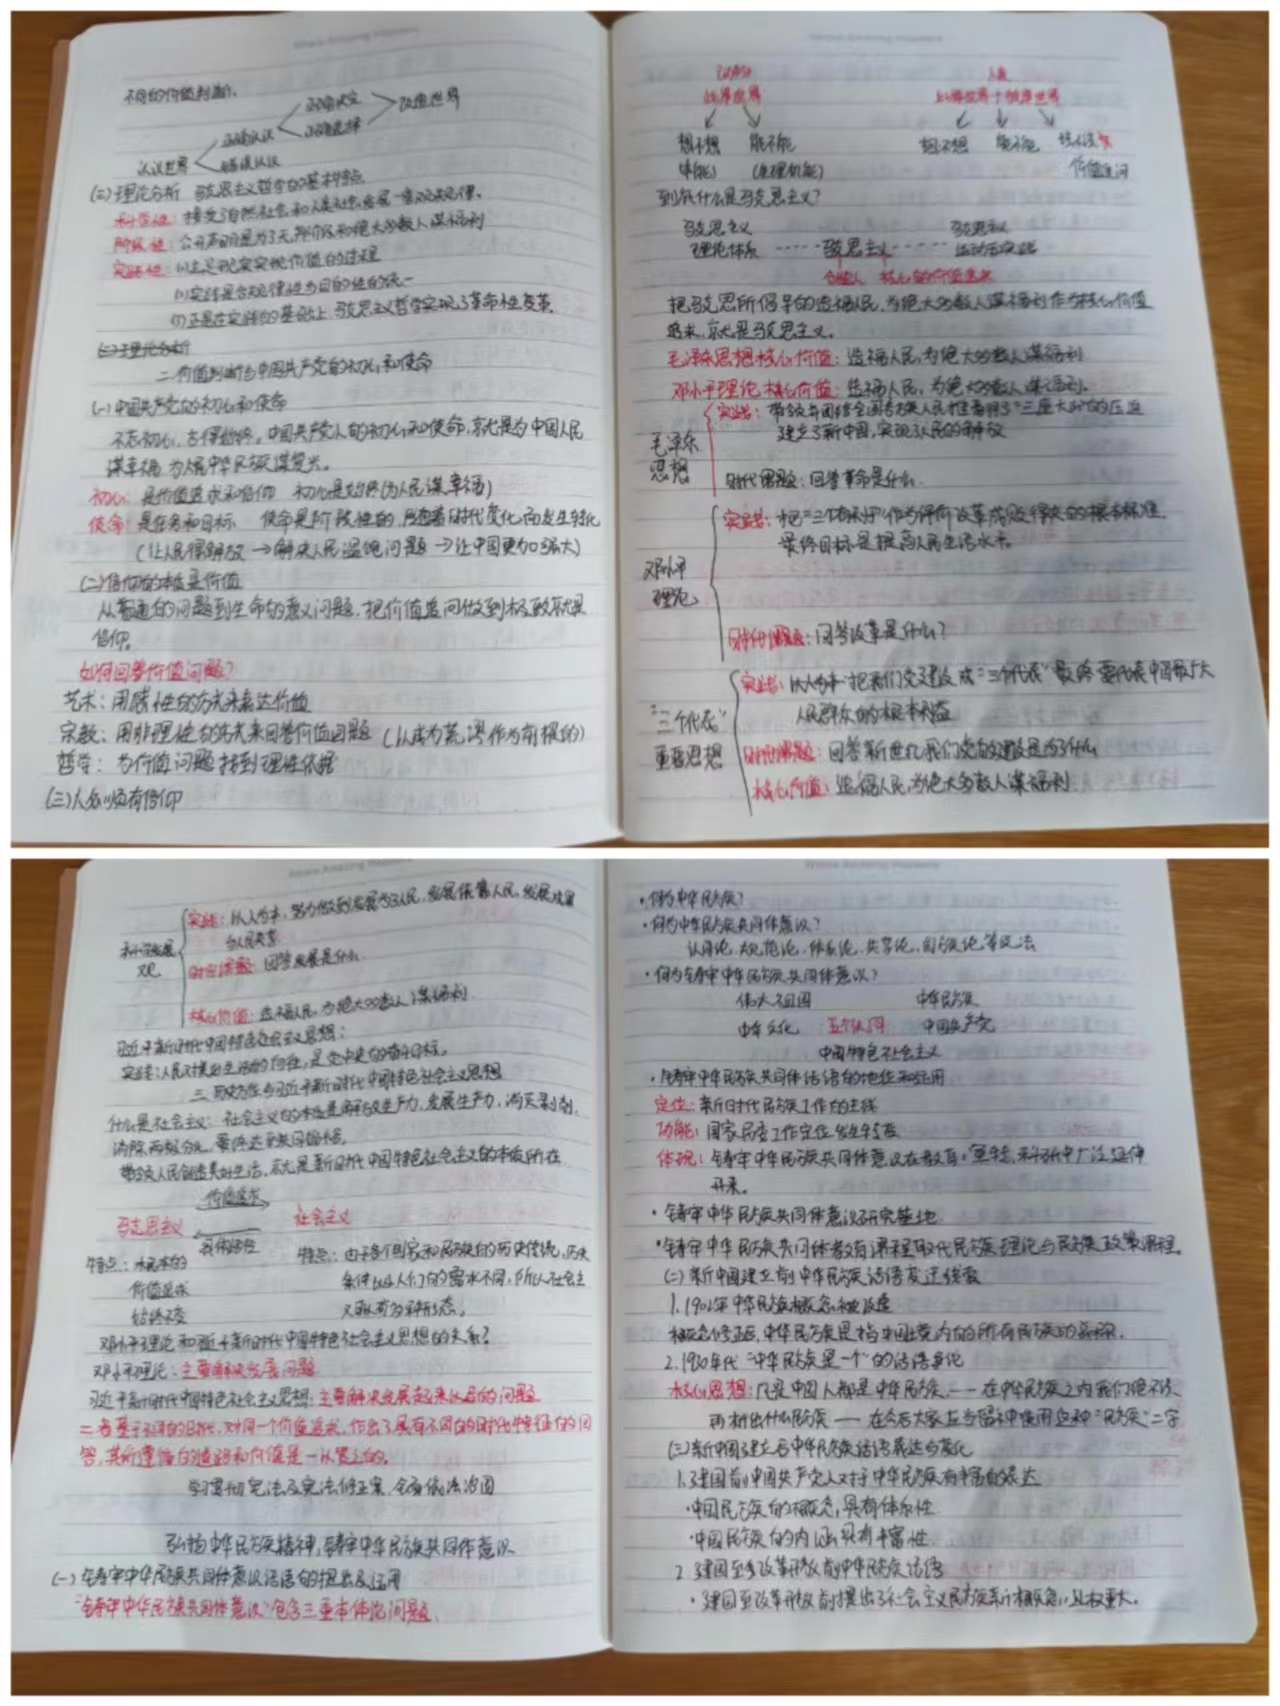 不同的价值判断.
正确决定
正确认识 改造世界
正确选择
认识世界
错误认识
(二)理论分析 马克思主义哲学的基本特点
科学性: 揭发了自然社会和人类社会发展一般观规律.
阶级性: 公开声明是为了无产阶级和绝大多数人谋福利
实践性:
(2)实践是合规律性与目的性的统一
(3)正是在实践的基础上, 马克思主义哲学实现了革命性变革.
(二)理论分析
二.价值判断与中国共产党的初心和使命
(一)中国共产党的初心和使命
不忘初心,方得始终, 中国共产党人的初心和使命,就是为中国人民
谋幸福 为人民中华民族谋复兴.
初心: 是价值追求和信仰 初心是始终(为人民谋幸福)
使命: 是任务和目标 使命是阶段性的,随着时代变化而发生转化
(让人民得解放 → 解决人民温饱问题 → 让中国更加强大)
(二)信仰的本质是价值
从普通的问题到生命的意义问题, 把价值追问做到极致就是
信仰.
如何回答价值问题?
艺术: 用感性的方式来表达价值
宗教: 用非理性的方式来回答价值问题 (以成为荒谬作为前提的)
哲学: 为价值问题找到理性依据
(三)人必须有信仰
动物 人类
此岸世界 此岸世界+彼岸世界
想不想 能不能 想不想 能不能 该不该
(本能) (生理机能) 价值追问
到底什么是马克思主义?
马克思主义 马克思主义
理论体系 ······ 马克思主义 ······ 运动与实践
创始人 核心的价值追求
把马克思所倡导的造福人民,为绝大多数人谋福利作为核心价值
追求,就是马克思主义.
毛泽东思想核心价值: 造福人民,为绝大多数人谋福利
邓小平理论核心价值: 造福人民, 为绝大多数人谋福利.
实践: 带领并团结全国各族人民推翻了“三座大山”的压迫
建立了新中国,实现人民的解放
毛泽东
思想
时代课题: 回答革命是什么.
实践: 把“三个有利于”作为评价改革成败得失的根本标准.
最终目标是提高人民生活水平.
邓小平
理论
时代课题: 回答改革是什么?
实践: 以人为本 把我们党建设成“三个代表” 最终要代表中国最广大
人民群众的根本利益
“三个代表”
重要思想
时代课题: 回答新世纪我们党的建设是为了什么
核心价值: 造福人民,为绝大多数人谋福利.
实践: 以人为本, 努力做到发展为了人民, 发展依靠人民, 发展成果
由人民共享
科学发展
观
时代课题: 回答发展是什么
核心价值: 造福人民, 为绝大多数人谋福利.
习近平新时代中国特色社会主义思想:
实践: 人民对美好生活的向往, 是党中央的奋斗目标.
三.历史方位与习近平新时代中国特色社会主义思想
什么是社会主义: 社会主义的本质是解放生产力, 发展生产力, 消灭剥削,
消除两极分化, 最终达到共同富裕.
带领人民创造美好生活, 就是新时代中国特色社会主义的本质所在
价值追求
马克思主义 社会主义
具体路径
特点: 水民本的 特点: 由于各个国家和民族的历史传统, 历史
价值追求 条件以及人们的需求不同, 所以社会主
始终不变 义就有多种形态.
邓小平理论和习近平新时代中国特色社会主义思想的关系?
邓小平理论: 主要解决发展问题
习近平新时代中国特色社会主义思想: 主要解决发展起来以后的问题
二者基于不同的时代, 对同一个价值追求, 作出了具有不同的时代特征的回
答, 其所遵循的道路和价值是一以贯之的.
学习贯彻宪法及宪法修正案, 全面依法治国
弘扬中华民族精神, 铸牢中华民族共同体意识
(一)铸牢中华民族共同体意识话语的提出及运用
“铸牢中华民族共同体意识”包含三重本体论问题.
·何为中华民族?
·何为中华民族共同体意识?
认同论, 规范论, 体系论, 共享论, 国族论等说法
·何为铸牢中华民族共同体意识?
伟大祖国 中华民族
中华文化 五个认同 中国共产党
中国特色社会主义
·铸牢中华民族共同体话语的地位和运用
定位: 新时代民族工作的主线
功能: 国家民委工作定位发生转变
体现: 铸牢中华民族共同体意识在教育, 宣传, 科研中广泛延伸
开来.
·铸牢中华民族共同体意识研究基地.
·铸牢中华民族共同体教育课程取代民族理论与民族政策课程.
(二)新中国建立前中华民族话语变迁线索
1. 1902年中华民族概念被改造
概念修正后, 中华民族是指中国境内的所有民族的总称.
2. 1930年代“中华民族是一个”的话语争论
核心思想: 凡是中国人都是中华民族 —— 在中华民族之内我们绝不该
再析出什么民族 —— 在今后大家应当留神使用这种“民族”二字
(三)新中国建立后中华民族话语表达与变化
1.建国前中国共产党人对于中华民族有丰富的表达
·中国民族的概念, 具有体系性
·中国民族的内涵具有丰富性
2.建国至改革开放前中华民族话语
·建国至改革开放前提出了社会主义民族新概念, 且权重大.